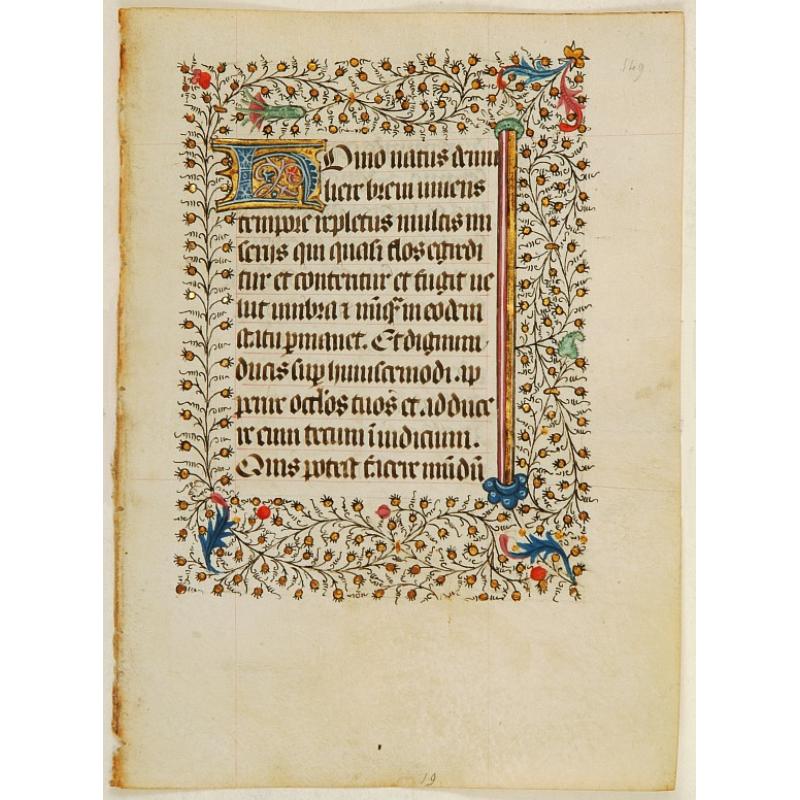 549
Homo natus de mu
liere breui uiuens
tempore repletus multis mi
serijs qui quasi flos egredi
tur et conteritur et fugit ue
lut umbra ⁊ nũq̃ in eodem
statu ꝑmanet. Et dignum
ducis suꝑ huiuscemodi. ap
perire octl̃os tuos et. adduce
re eum tecum ĩ iudicium.
Quis potest f̃acere mũdũ
19